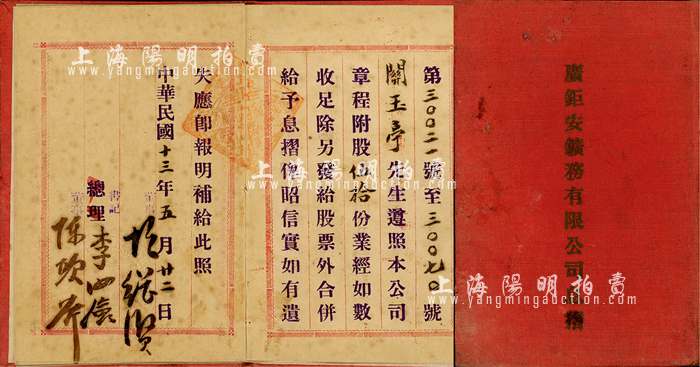 廣鉅安鑛務有限公司息摺
第三〇〇二一號至三〇〇七〇號
關玉亭先生遵照本公司
章程附股伍拾份業經如數
收足除另發給股票外合併
給予息摺俾昭信實如有遺
失應即報明補給此照
中華民國十三年五月廿二日
書記
總理
上海陽明拍賣
www.yangmingauction.com
上海陽明拍賣
www.yangmingauction.com
上海陽明拍賣
www.yangmingauction.com
上海陽明拍賣
www.yangmingauction.com